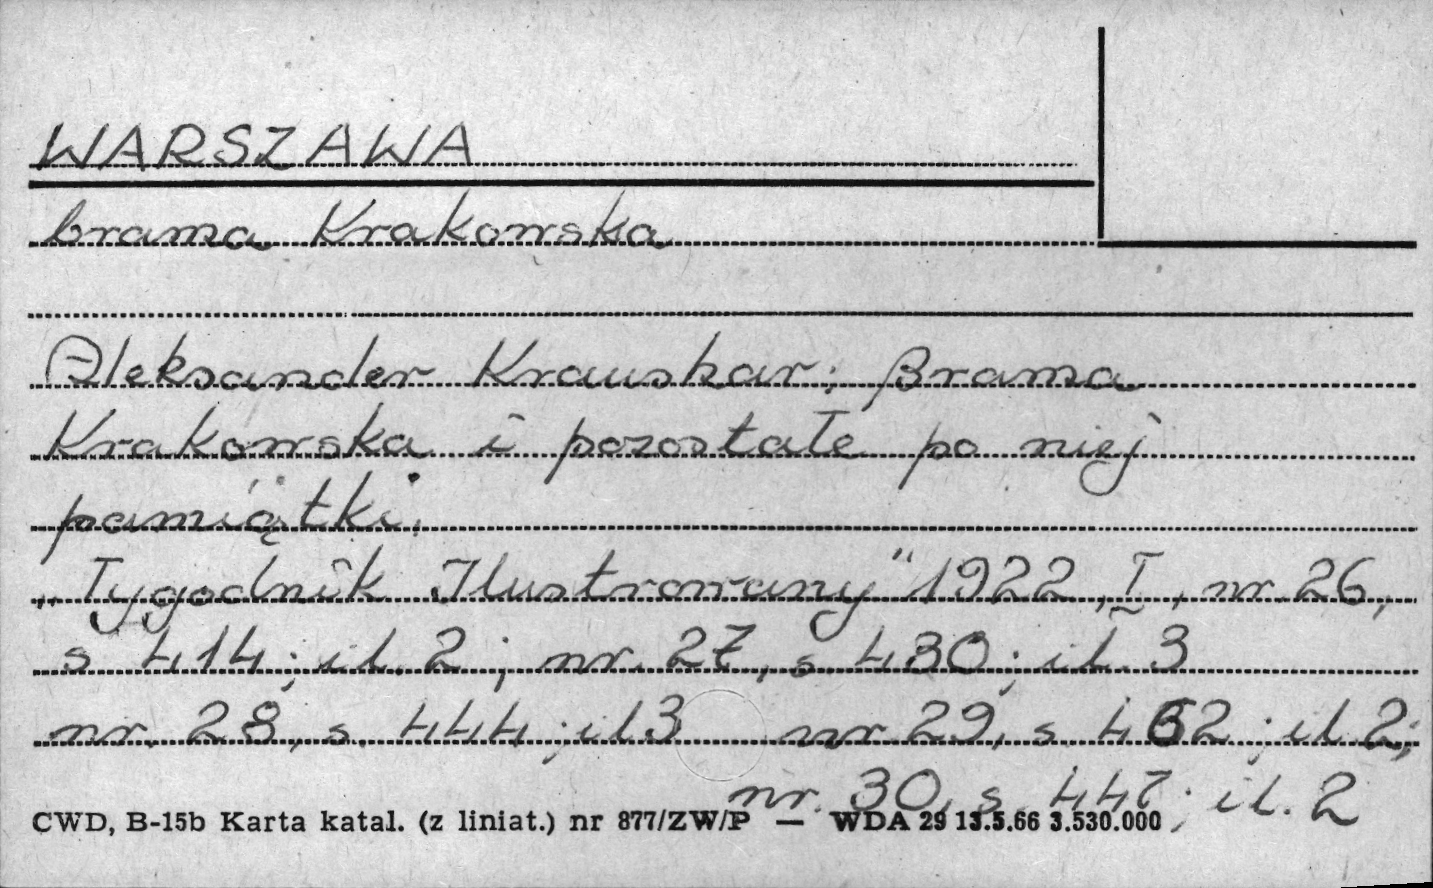 WARSZAWA
brama Krakowska
Aleksander Kraushar: Brama
Krakowska i pozostałe po niej
pamiątki.
„Tygodnik Ilustrowany" 1922, I, nr. 26,
s 414; il. 2; nr. 27, s. 430; il. 3
nr. 28, s. 444; il 3 nr 29, s 462; il. 2;
nr. 30, s. 447; il. 2
CWD, B-15b Karta katal. (z liniat.) nr 877/ZW/P — WDA 29 13.5.66 3.530.000